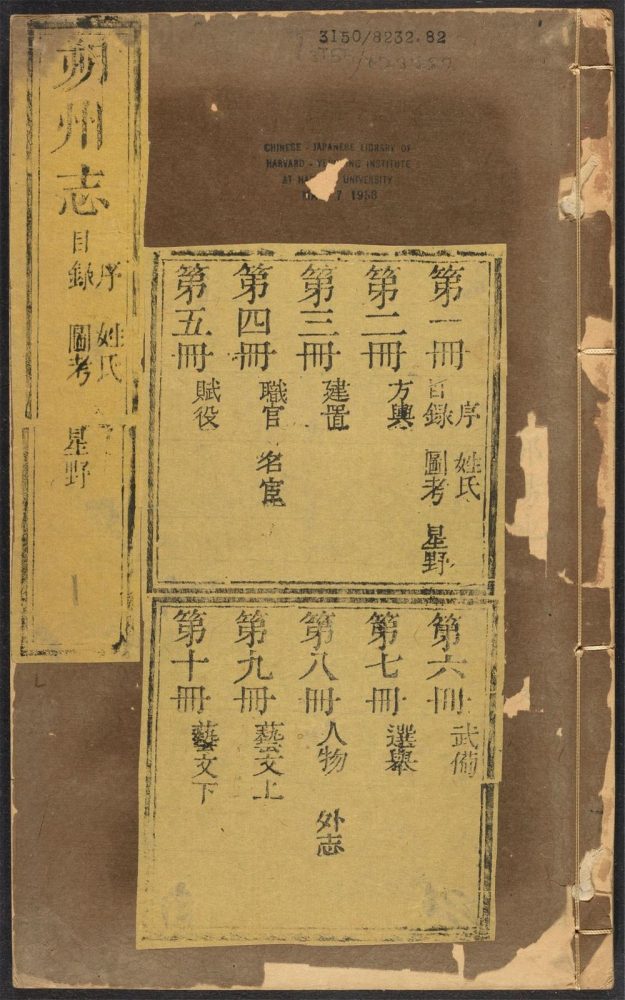 3150/8232.82
CHINESE - JAPANESE LIBRARY OF
HARVARD - INSTITUTE
AT UNIVERSITY
7 1938
朔州志
序 姓氏
目錄 圖考 星野
第一冊
序 姓氏
目錄 圖考 星野
第二冊 方輿
第三冊 建置
第四冊 職官 名宦
第五冊 賦役
第六冊 武備
第七冊 選舉
第八冊 人物 外志
第九冊 藝文上
第十冊 藝文下